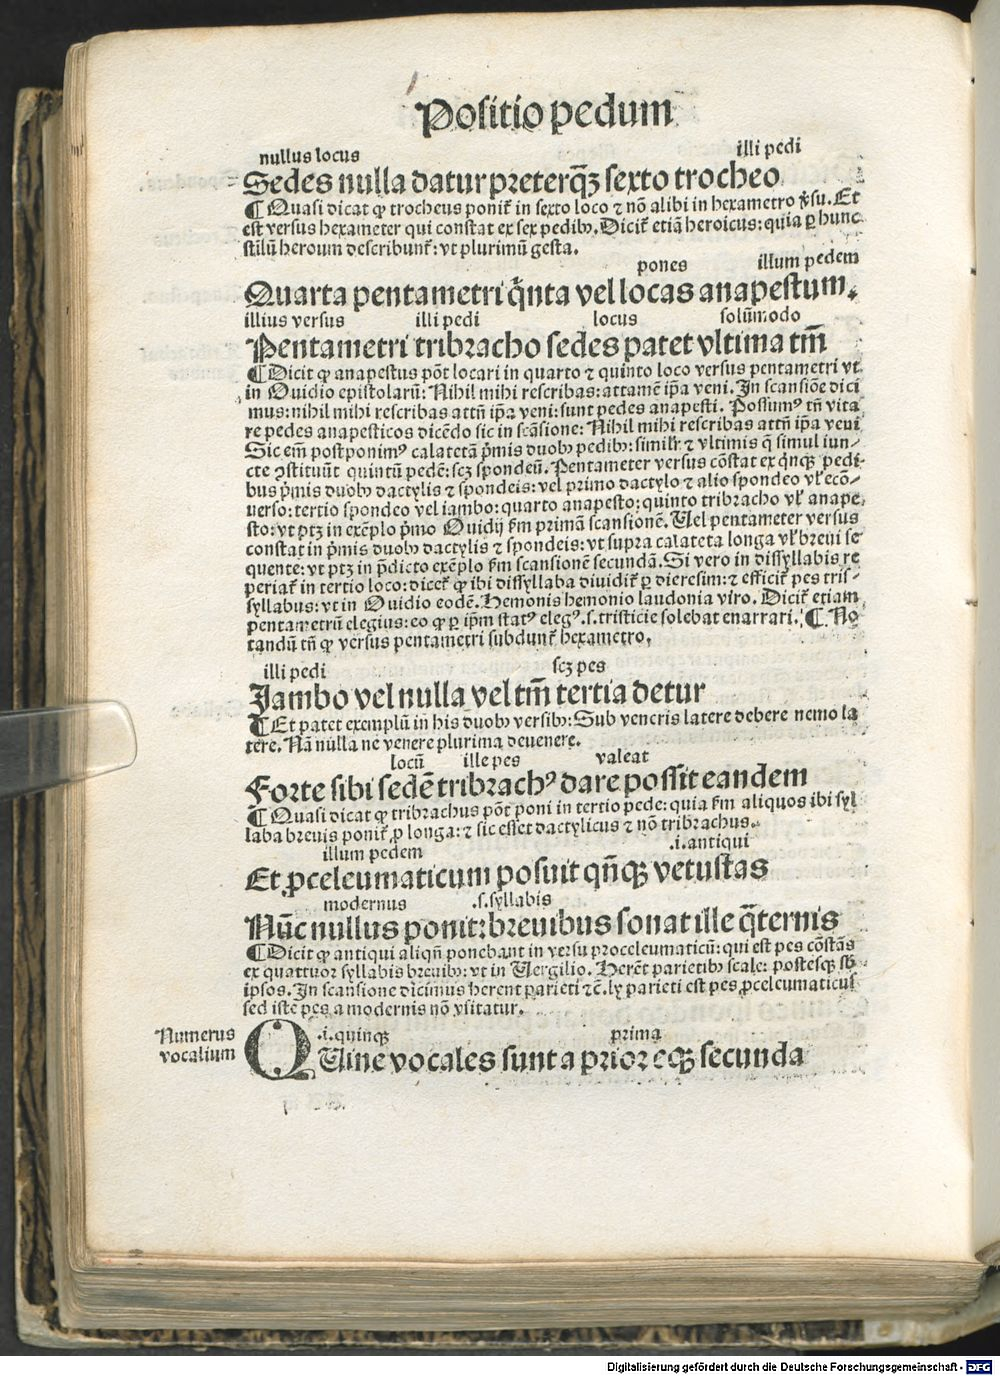 Positio pedum
nullus locus illi pedi
Sedes nulla datur preterq̄ꝫ sexto trocheo
¶ Quasi dicat ꝙ trocheus ponit᷑ in sexto loco ⁊ nō alibi in hexametro v̓su. Et
est versus hexameter qui constat ex sex pedibꝫ. Dicit᷑ etiā heroicus: quia ꝑ hunc
stilū heroum describunt᷑: vt plurimū gesta.
pones illum pedem
Quarta pentametri q̄nta vel locas anapestum.
illius versus illi pedi locus solūmodo
Pentametri tribracho sedes patet vltima tm̄
¶ Dicit ꝙ anapestus pōt locari in quarto ⁊ quinto loco versus pentametri vt
in Ouidio epistolarū: Nihil mihi rescribas: attamē ip̄a veni. In scansiōe dici
mus: nihil mihi rescribas attn̄ ip̄a veni: sunt pedes anapesti. Possumꝰ tn̄ vita
re pedes anapesticos dicēdo sic in scāsione: Nihil mihi rescribas attn̄ ip̄a veni
Sic em̄ postponimꝰ calatetā p̄mis duobꝫ pedibꝫ: similr̄ ⁊ vltimis q̄ simul iun-
cte ꝯstituūt quintū pedē: scꝫ spondeū. Pentameter versus cōstat ex q̄nqꝫ pedi-
bus p̄mis duobꝫ dactylis ⁊ spondeis: vel primo dactylo ⁊ alio spondeo vl̓ ecō-
uerso: tertio spondeo vel iambo: quarto anapesto: quinto tribracho vl̓ anape
sto: vt ptꝫ in exēplo p̄mo Ouidij ẜm primā scansionē. Uel pentameter versus
constat in p̄mis duobꝫ dactylis ⁊ spondeis: vt supra calateta longa vl̓ breui se
quente: vt ptꝫ in p̄dicto exēplo ẜm scansionē secundā. Si vero in dissyllabis re
periat᷑ in tertio loco: dicet᷑ ꝙ ibi dissyllaba diuidit᷑ ꝑ dieresim: ⁊ efficit᷑ pes tris-
syllabus: vt in Ouidio eodē. Hemonis hemonio laudonia viro. Dicit᷑ etiam
pentametrū elegius: eo ꝙ ꝑ ip̄m statꝰ elegꝰ .s. tristicie solebat enarrari. ¶ No
tandū tn̄ ꝙ versus pentametri subdunt᷑ hexametro.
illi pedi scꝫ pes
Jambo vel nulla vel tm̄ tertia detur
¶ Et patet exemplū in his duobꝫ versibꝫ: Sub veneris latere debere nemo la
tere. Nā nulla ne venere plurima deuenere.
locū ille pes valeat
Forte sibi sedē tribrachꝰ dare possit eandem
¶ Quasi dicat ꝙ tribrachus pōt poni in tertio pede: quia ẜm aliquos ibi syl
laba breuis ponit᷑ ꝓ longa: ⁊ sic esset dactylicus ⁊ nō tribrachus.
illum pedem .i. antiqui
Et ꝓceleumaticum posuit qn̄qꝫ vetustas
modernus .s. syllabis
Nūc nullus ponit: breuibus sonat ille q̄ternis
¶ Dicit ꝙ antiqui aliqn̄ ponebant in versu proceleumaticū: qui est pes cōstās
ex quattuor syllabis breuibꝫ: vt in Uergilio. Herēt parietibꝫ scale: postesqꝫ sb̓
ipsos. In scansione dicimus herent parieti ⁊c̄. Iꝫ parieti est pes ꝓceleumaticus
sed iste pes a modernis nō vsitatur.
Numerus
vocalium
.i. quinqꝫ prima
QUine vocales sunt a prior eqꝫ secunda
Digitalisierung gefördert durch die Deutsche Forschungsgemeinschaft - DFG